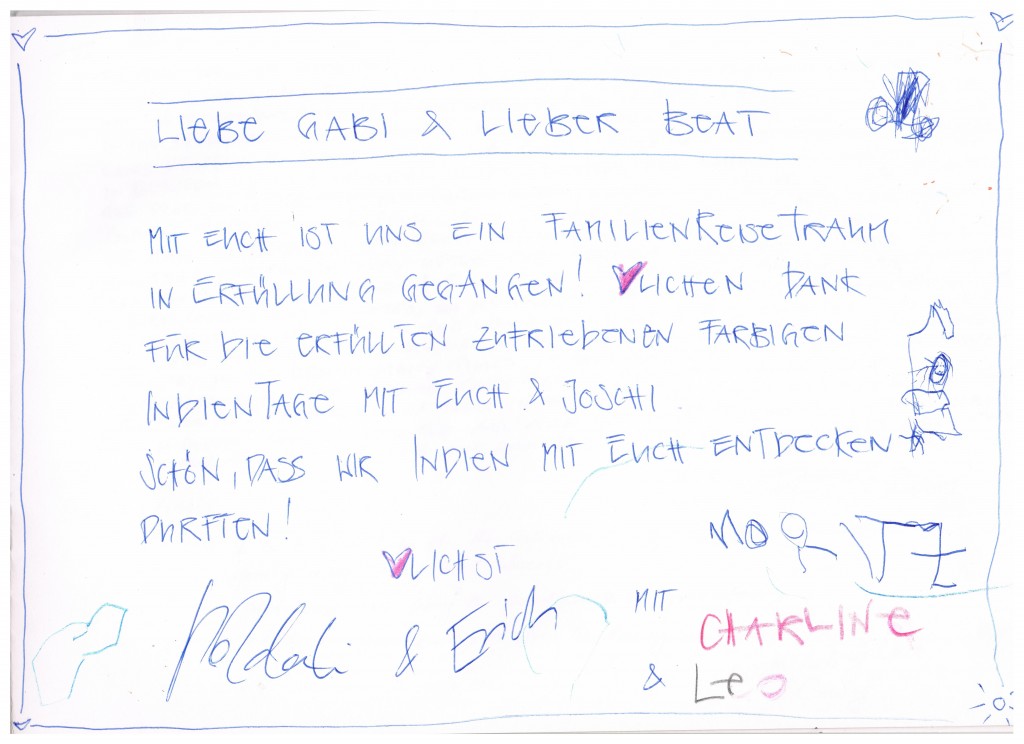 LIEBE GABI & LIEBER BEAT
MIT EUCH IST UNS EIN FAMILIENREISETRAUM
IN ERFÜLLUNG GEGANGEN! ♥LICHEN DANK
FÜR DIE ERFÜLLTEN ZUFRIEDENEN FARBIGEN
INDIENTAGE MIT EUCH & JOSCHI.
SCHÖN, DASS WIR INDIEN MIT EUCH ENTDECKEN
DURFTEN!
♥LICHST
& Erich
MIT
MORITZ
CHARLINE
& Leo